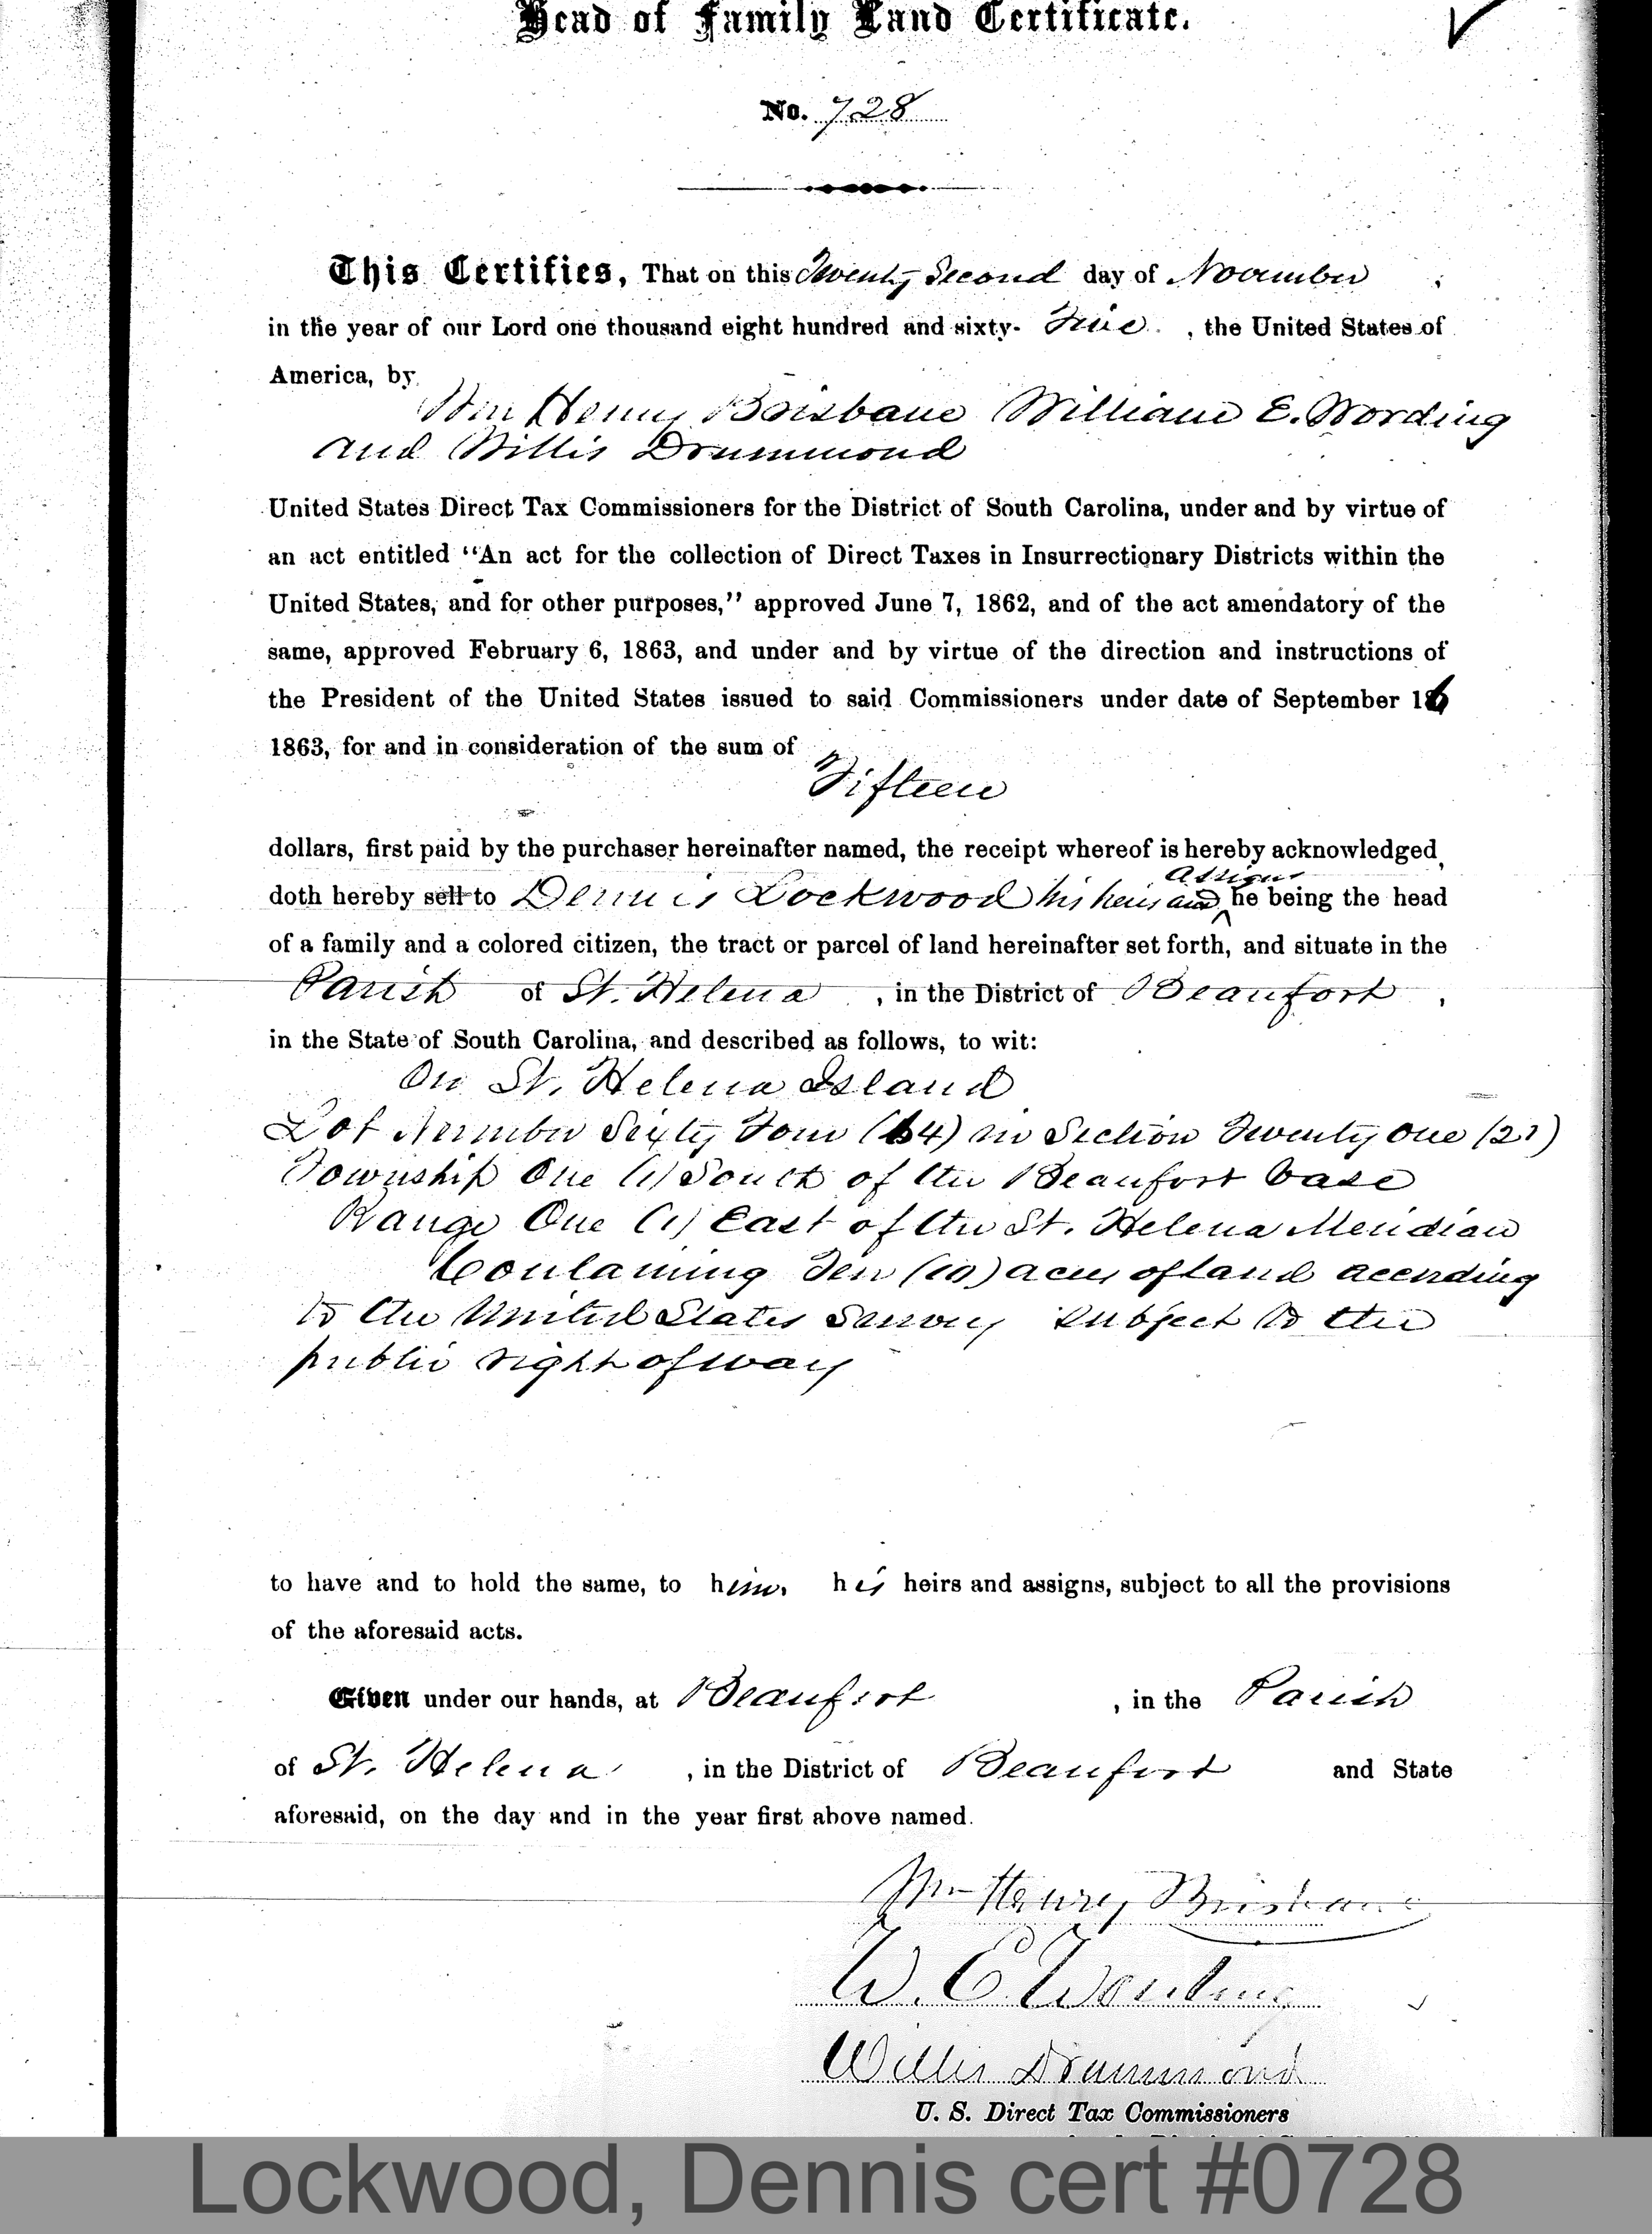 Head of Family Land Certificate.
No. 728
This Certifies, That on this Twenty Second day of November
in the year of our Lord one thousand eight hundred and sixty- Five , the United States of
America, by
Wm Henry Brisbane William E. Wording
and Willis Drummond
United States Direct Tax Commissioners for the District of South Carolina, under and by virtue of
an act entitled "An act for the collection of Direct Taxes in Insurrectionary Districts within the
United States, and for other purposes," approved June 7, 1862, and of the act amendatory of the
same, approved February 6, 1863, and under and by virtue of the direction and instructions of
the President of the United States issued to said Commissioners under date of September 16
1863, for and in consideration of the sum of
Fifteen
dollars, first paid by the purchaser hereinafter named, the receipt whereof is hereby acknowledged,
doth hereby sell to Dennis Lockwood his heirs and assigns he being the head
of a family and a colored citizen, the tract or parcel of land hereinafter set forth, and situate in the
Parish of St. Helena , in the District of Beaufort ,
in the State of South Carolina, and described as follows, to wit:
On St. Helena Island
Lot Number Sixty Four (64) in Section Twenty One (21)
Township One (1) South of the Beaufort base
Range One (1) East of the St. Helena Meridian
Containing Ten (10) acres of land according
to the United States Survey Subject to the
public right of way
to have and to hold the same, to him, his heirs and assigns, subject to all the provisions
of the aforesaid acts.
Given under our hands, at Beaufort , in the Parish
of St. Helena , in the District of Beaufort and State
aforesaid, on the day and in the year first above named.
Wm Henry Brisbane
W. E. Wording
Willis Drummond
U. S. Direct Tax Commissioners
Lockwood, Dennis cert #0728